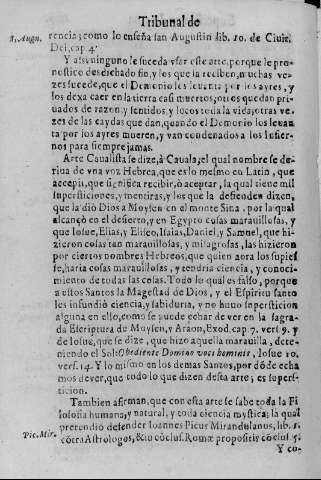 Tribunal de
S. Augu. rencia; como lo enseña san Augustin lib. 10. de Ciuit.
Dei, cap. 4.
Y assi ninguno le suceda vsar este arte, porque le pro-
nostico desdichado fin, y los que la reciben, muchas ve-
zes sucede, que el Demonio les leuanta por los ayres, y
los dexa caer en la tierra casi muertos; otros quedan pri-
uados de razon, y sentidos, y locos toda la vida; otras ve-
zes de las caydas que dan, quando el Demonio los leuan
ta por los ayres mueren, y van condenados a los Infier-
nos para siempre jamas.
Arte Caualista se dize, à Cauala, el qual nombre se de-
riua de vna voz Hebrea, que es lo mesmo en Latin, que
acceptio, que significa recibir, ò aceptar, la qual tiene mil
supersticiones, y mentiras, y los que la defienden dizen,
que la diò Dios a Moysen en el monte Sina, por la qual
alcançò en el desierto, y en Egypto cosas marauillosas, y
que Iosue, Elias, y Eliseo, Isaias, Daniel, y Samuel, que hi-
zieron cosas tan marauillosas, y milagrosas, las hizieron
por ciertos nombres Hebreos, que quien aora los supies
se, haria cosas marauillosas, y tendria ciencia, y conoci-
miento de todas las cosas. Todo lo qual es falso, porque
a estos Santos la Magestad de Dios, y el Espiritu santo
les infundiò ciencia, y sabiduria, y no huuo supersticion
alguna en ello, como se puede echar de ver en la sagra-
da Escriptura de Moysen, y Araon, Exod. cap. 7. vers. 9. y
de Iosue, que se dize, que hizo aquella marauilla, dete-
niendo el Sol: Obediente Domino voci hominis, Iosue 10.
vers. 14. Y lo mismo en los demas Santos, por dõde echa
mos de ver, que todo lo que dizen desta arte, es supers-
ticion.
Tambien afirman, que con esta arte se sabe toda la Fi
losofia humana, y natural, y toda ciencia mystica; la qual
pretendiò defender Ioannes Picus Mirandulanus, lib. 1.
Pic. Mir. cõtra Astrologos, & in cõclus. Romæ propositis cõclus. 5.
Y co-